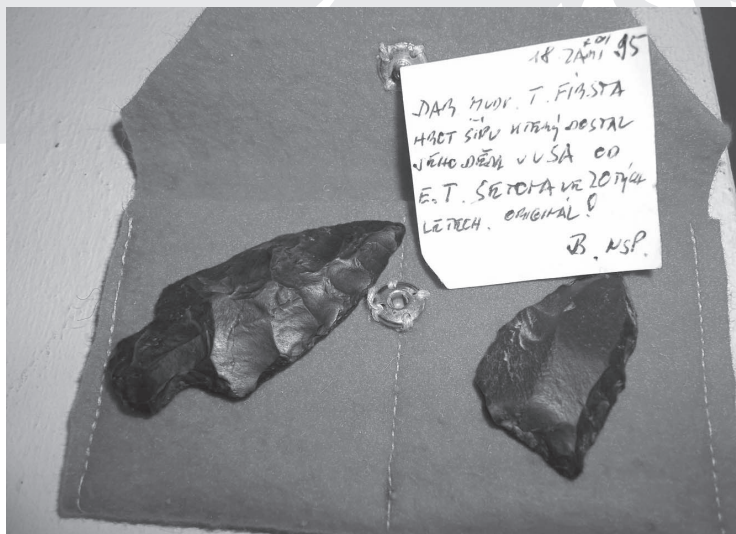 18. ZÁŘÍ 95
DAR MUDR. T. FIRSTA
HROT ŠÍPU KTERÝ DOSTAL
JEHO DĚDA V USA OD
E. T. SETONA VE 20TÝCH
LETECH. ORIGINÁL!
B.